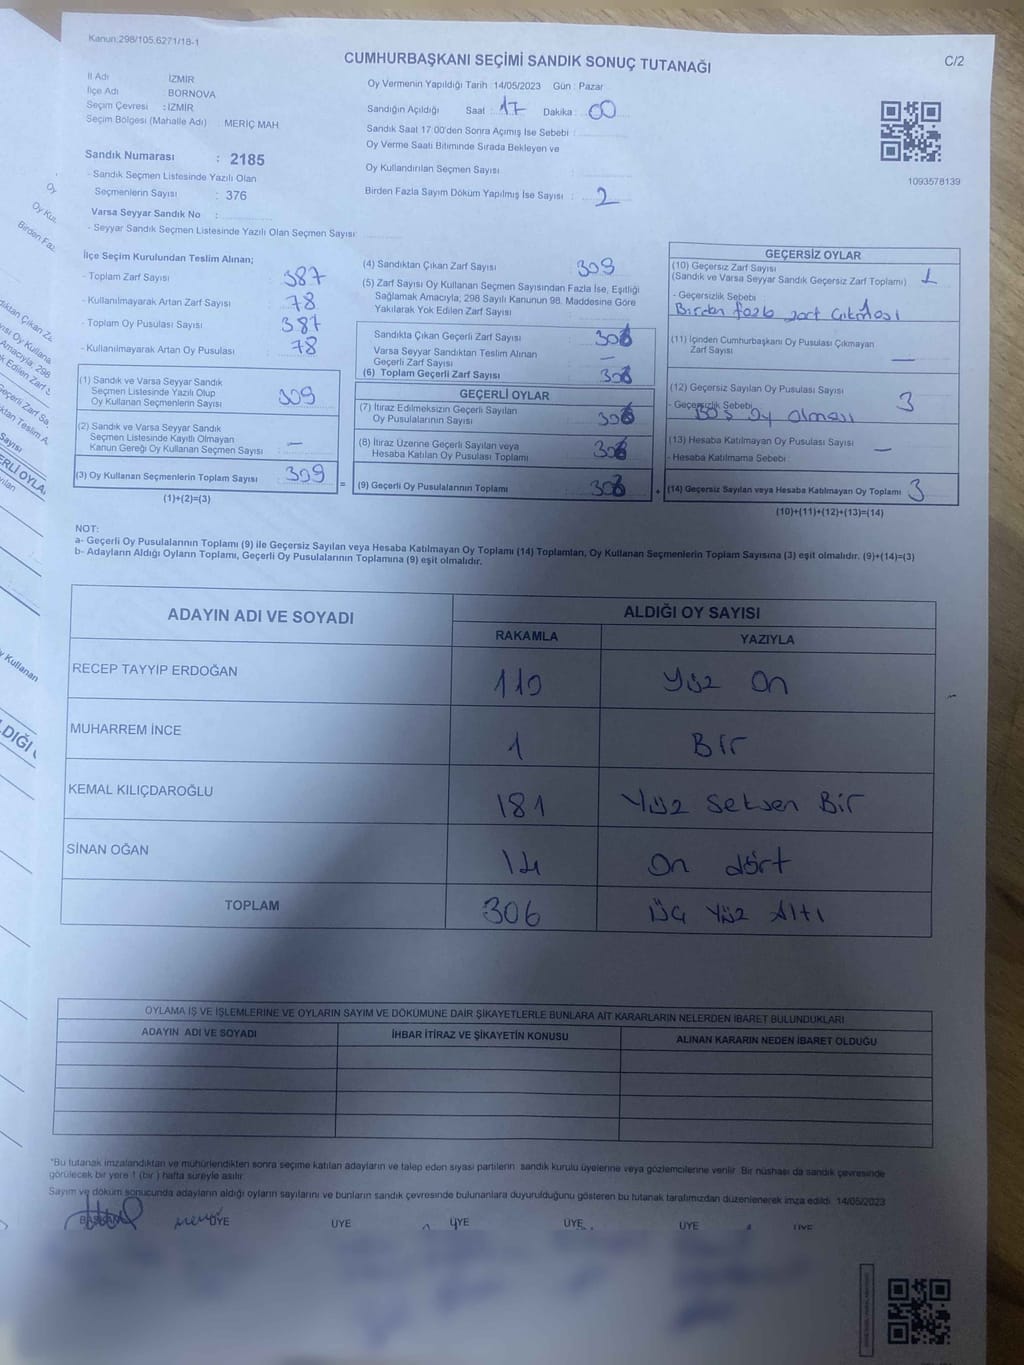 Kanun:298/105,6271/18-1
CUMHURBAŞKANI SEÇİMİ SANDIK SONUÇ TUTANAĞI
C/2
İl Adı İZMİR
İlçe Adı : BORNOVA
Seçim Çevresi : İZMİR
Seçim Bölgesi (Mahalle Adı) : MERİÇ MAH
Sandık Numarası : 2185
- Sandık Seçmen Listesinde Yazılı Olan
Seçmenlerin Sayısı : 376
Varsa Seyyar Sandık No :
- Seyyar Sandık Seçmen Listesinde Yazılı Olan Seçmen Sayısı:
Oy Vermenin Yapıldığı Tarih : 14/05/2023 Gün : Pazar
Sandığın Açıldığı Saat : 17 Dakika : 00
Sandık Saat 17:00'den Sonra Açımış İse Sebebi :
Oy Verme Saati Bitiminde Sırada Bekleyen ve
Oy Kullandırılan Seçmen Sayısı :
Birden Fazla Sayım Döküm Yapılmış İse Sayısı : 2
1093578139
İlçe Seçim Kurulundan Teslim Alınan;
- Toplam Zarf Sayısı : 387
- Kullanılmayarak Artan Zarf Sayısı : 78
- Toplam Oy Pusulası Sayısı : 387
- Kullanılmayarak Artan Oy Pusulası : 78
(1) Sandık ve Varsa Seyyar Sandık
Seçmen Listesinde Yazılı Olup
Oy Kullanan Seçmenlerin Sayısı : 309
(2) Sandık ve Varsa Seyyar Sandık
Seçmen Listesinde Kayıtlı Olmayan
Kanun Gereği Oy Kullanan Seçmen Sayısı : —
(3) Oy Kullanan Seçmenlerin Toplam Sayısı : 309
(1)+(2)=(3)
(4) Sandıktan Çıkan Zarf Sayısı : 309
(5) Zarf Sayısı Oy Kullanan Seçmen Sayısından Fazla İse, Eşitliği
Sağlamak Amacıyla, 298 Sayılı Kanunun 98. Maddesine Göre
Yakılarak Yok Edilen Zarf Sayısı :
Sandıkta Çıkan Geçerli Zarf Sayısı : 308
Varsa Seyyar Sandıktan Teslim Alınan
Geçerli Zarf Sayısı : —
(6) Toplam Geçerli Zarf Sayısı : 308
GEÇERLİ OYLAR
(7) İtiraz Edilmeksizin Geçerli Sayılan
Oy Pusulalarının Sayısı : 306
(8) İtiraz Üzerine Geçerli Sayılan veya
Hesaba Katılan Oy Pusulası Toplamı : 306
(9) Geçerli Oy Pusulalarının Toplamı : 306
GEÇERSİZ OYLAR
(10) Geçersiz Zarf Sayısı
(Sandık ve Varsa Seyyar Sandık Geçersiz Zarf Toplamı) : 1
- Geçersizlik Sebebi
Birden fazla zarf Çıkması
(11) İçinden Cumhurbaşkanı Oy Pusulası Çıkmayan
Zarf Sayısı —
(12) Geçersiz Sayılan Oy Pusulası Sayısı 3
- Geçersizlik Sebebi
Boş oy olması
(13) Hesaba Katılmayan Oy Pusulası Sayısı —
- Hesaba Katılmama Sebebi
(14) Geçersiz Sayılan veya Hesaba Katılmayan Oy Toplamı : 3
(10)+(11)+(12)+(13)=(14)
NOT:
a- Geçerli Oy Pusulalarının Toplamı (9) ile Geçersiz Sayılan veya Hesaba Katılmayan Oy Toplamı (14) Toplamları, Oy Kullanan Seçmenlerin Toplam Sayısına (3) eşit olmalıdır. (9)+(14)=(3)
b- Adayların Aldığı Oyların Toplamı, Geçerli Oy Pusulalarının Toplamına (9) eşit olmalıdır.
ADAYIN ADI VE SOYADI ALDIĞI OY SAYISI
RAKAMLA YAZIYLA
RECEP TAYYIP ERDOĞAN 110 Yüz On
MUHARREM İNCE 1 Bir
KEMAL KILIÇDAROĞLU 181 Yüz Seksen Bir
SİNAN OĞAN 14 On dört
TOPLAM 306 Üç Yüz Altı
OYLAMA İŞ VE İŞLEMLERİNE VE OYLARIN SAYIM VE DÖKÜMÜNE DAİR ŞİKAYETLERLE BUNLARA AİT KARARLARIN NELERDEN İBARET BULUNDUKLARI
ADAYIN ADI VE SOYADI İHBAR İTİRAZ VE ŞİKAYETİN KONUSU ALINAN KARARIN NEDEN İBARET OLDUĞU
*Bu tutanak imzalandıktan ve mühürlendikten sonra seçime katılan adayların ve talep eden siyasi partilerin sandık kurulu üyelerine veya gözlemcilerine verilir. Bir nüshası da sandık çevresinde
görülecek bir yere 1 (bir) hafta süreyle asılır.
Sayım ve döküm sonucunda adayların aldığı oyların sayılarını ve bunların sandık çevresinde bulunanlara duyurulduğunu gösteren bu tutanak tarafımızdan düzenlenerek imza edildi. 14/05/2023
BAŞKAN ÜYE ÜYE ÜYE ÜYE ÜYE ÜYE